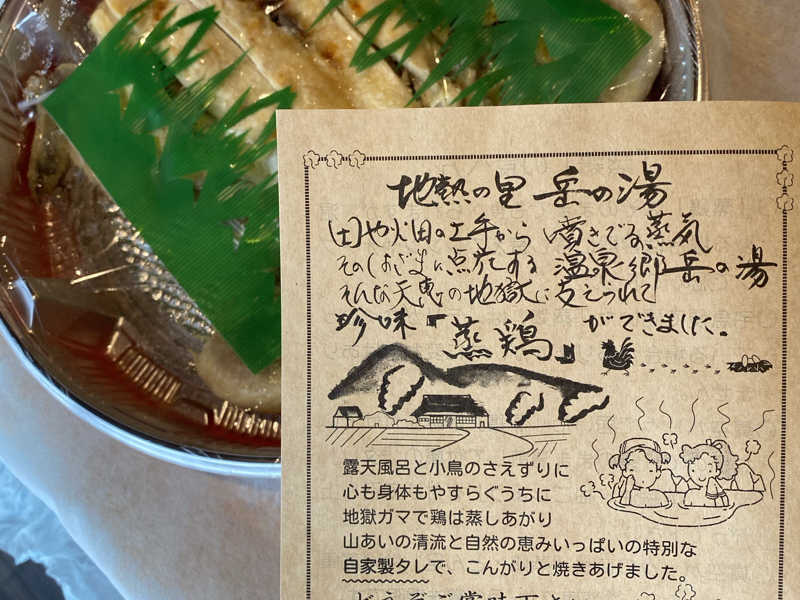 地熱の里 岳の湯
田や火田の土手から 噴きでる蒸気
そのしおざまに点在する 温泉郷岳の湯
そんな天恵の地獄に支えられて
珍味『蒸鶏』ができました。
露天風呂と小鳥のさえずりに
心も身体もやすらぐうちに
地獄ガマで鶏は蒸しあがり
山あいの清流と自然の恵みいっぱいの特別な
自家製タレで、こんがりと焼きあげました。